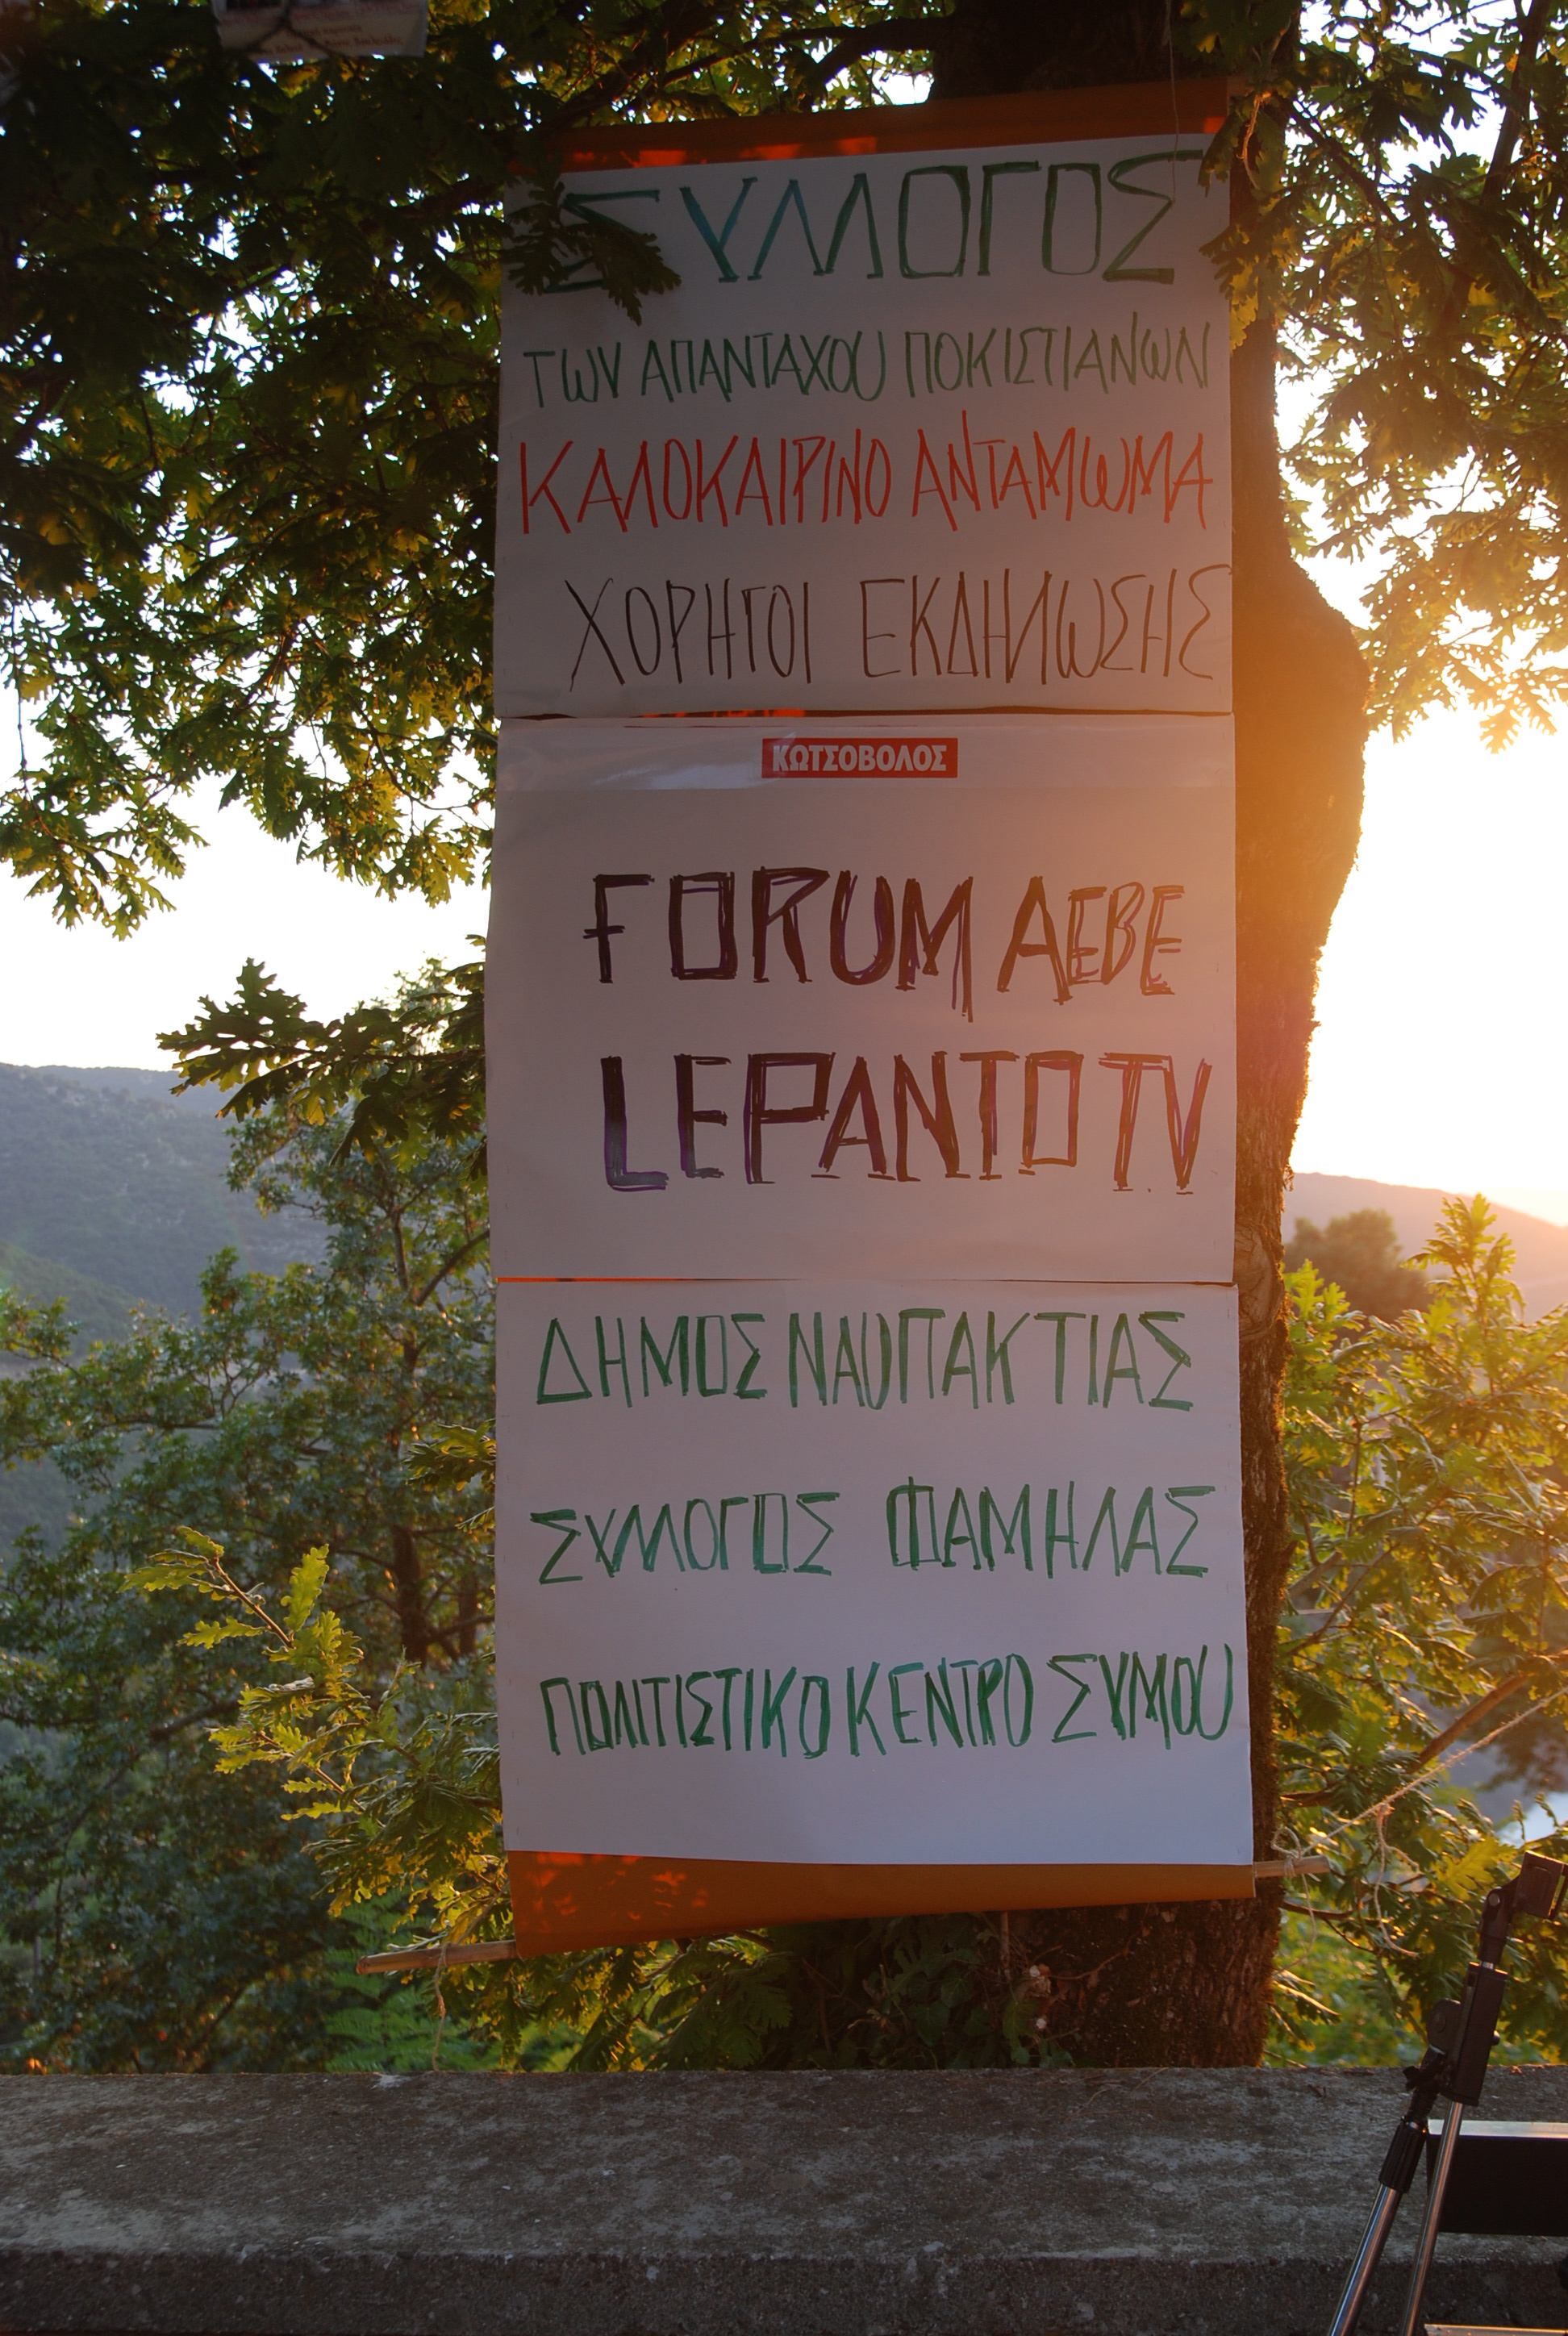 ΣΥΛΛΟΓΟΣ
ΤΩΝ ΑΠΑΝΤΑΧΟΥ ΠΟΚΙΣΤΙΑΝΩΝ
ΚΑΛΟΚΑΙΡΙΝΟ ΑΝΤΑΜΩΜΑ
ΧΟΡΗΓΟΙ ΕΚΔΗΛΩΣΗΣ
ΚΩΤΣΟΒΟΛΟΣ
FORUM ΑΕΒΕ
LEPANTO TV
ΔΗΜΟΣ ΝΑΥΠΑΚΤΙΑΣ
ΣΥΛΛΟΓΟΣ ΦΑΜΗΛΑΣ
ΠΟΛΙΤΙΣΤΙΚΟ ΚΕΝΤΡΟ ΣΥΜΟΥ